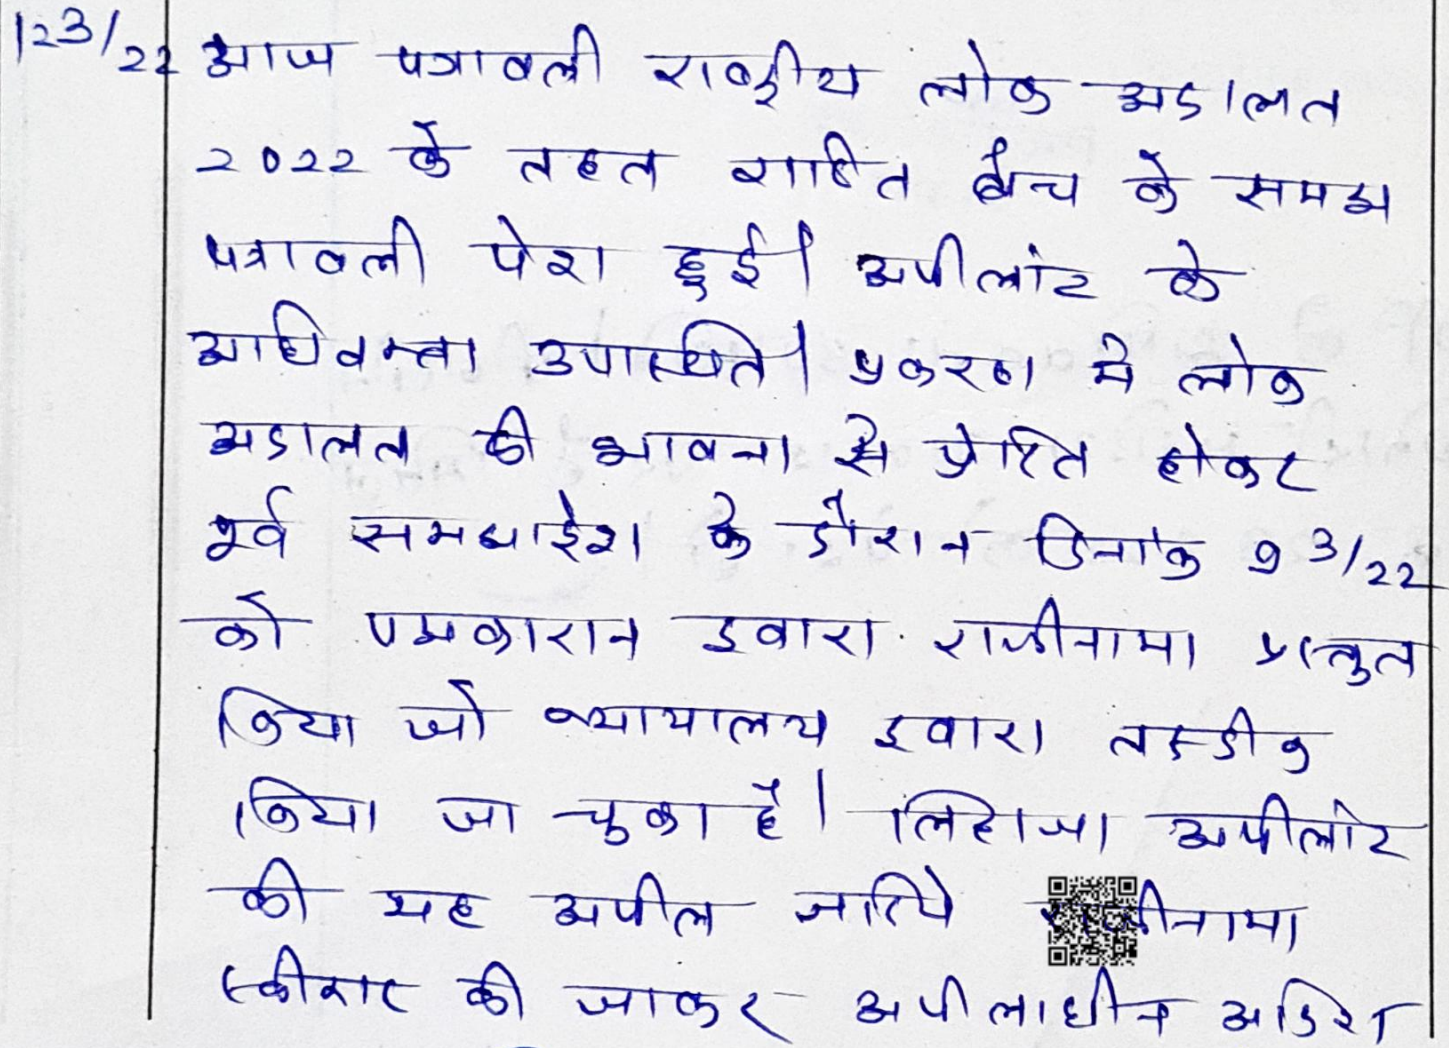 123/22 आज पत्रावली राष्ट्रीय लोक अदालत
2022 के तहत गठित बैंच के समक्ष
पत्रावली पेश हुई। अपीलांट के
अधिवक्ता उपस्थित। प्रकरण मे लोक
अदालत की भावना से प्रेरित होकर
पूर्व समझाईश के दौरान दिनांक 9 3/22
को पक्षकारान द्वारा राजीनामा प्रस्तुत
किया जो न्यायालय द्वारा तस्दीक
किया जा चुका है। लिहाजा अपीलांट
की यह अपील जरिये राजीनामा
स्वीकार की जाकर अपीलाधीन आदेश